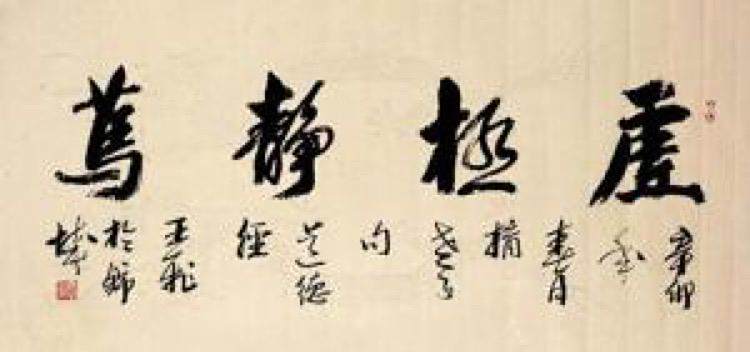 虛極靜篤
辛卯
年
春月
摘
老子
句
道德
經
王飛
於錦
城